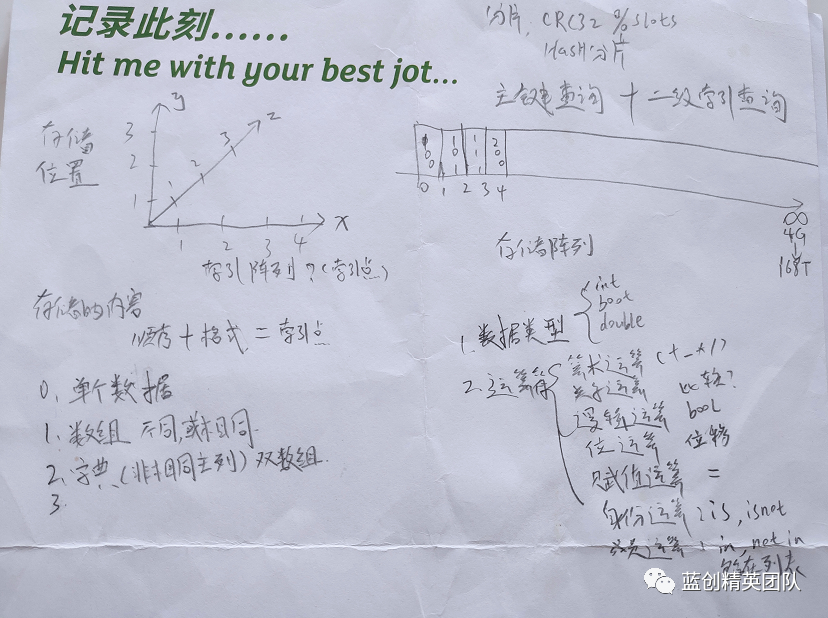 记录此刻......
Hit me with your best jot...
分片, CRC32 % slots
Hash分片
主键查询 + 二级索引查询
存储
位置
y
z
3
2
1
1
2
3
x
1 2 3 4
索引阵列?(索引点)
0 1 2 3 4
∞
4G
168T
存储阵列
存储的内容
顺序 + 格式 = 索引点
0. 单个数据
1. 数组 不同,或相同.
2. 字典 (非相同主列) 双数组.
3.
1. 数据类型
int
boot
double
2. 运算符
算术运算 (+-*/)
关系运算 比较?
逻辑运算 bool
位运算 位移
赋值运算 =
身份运算: is, isnot
成员运算: in, not in
蓝创精英团队